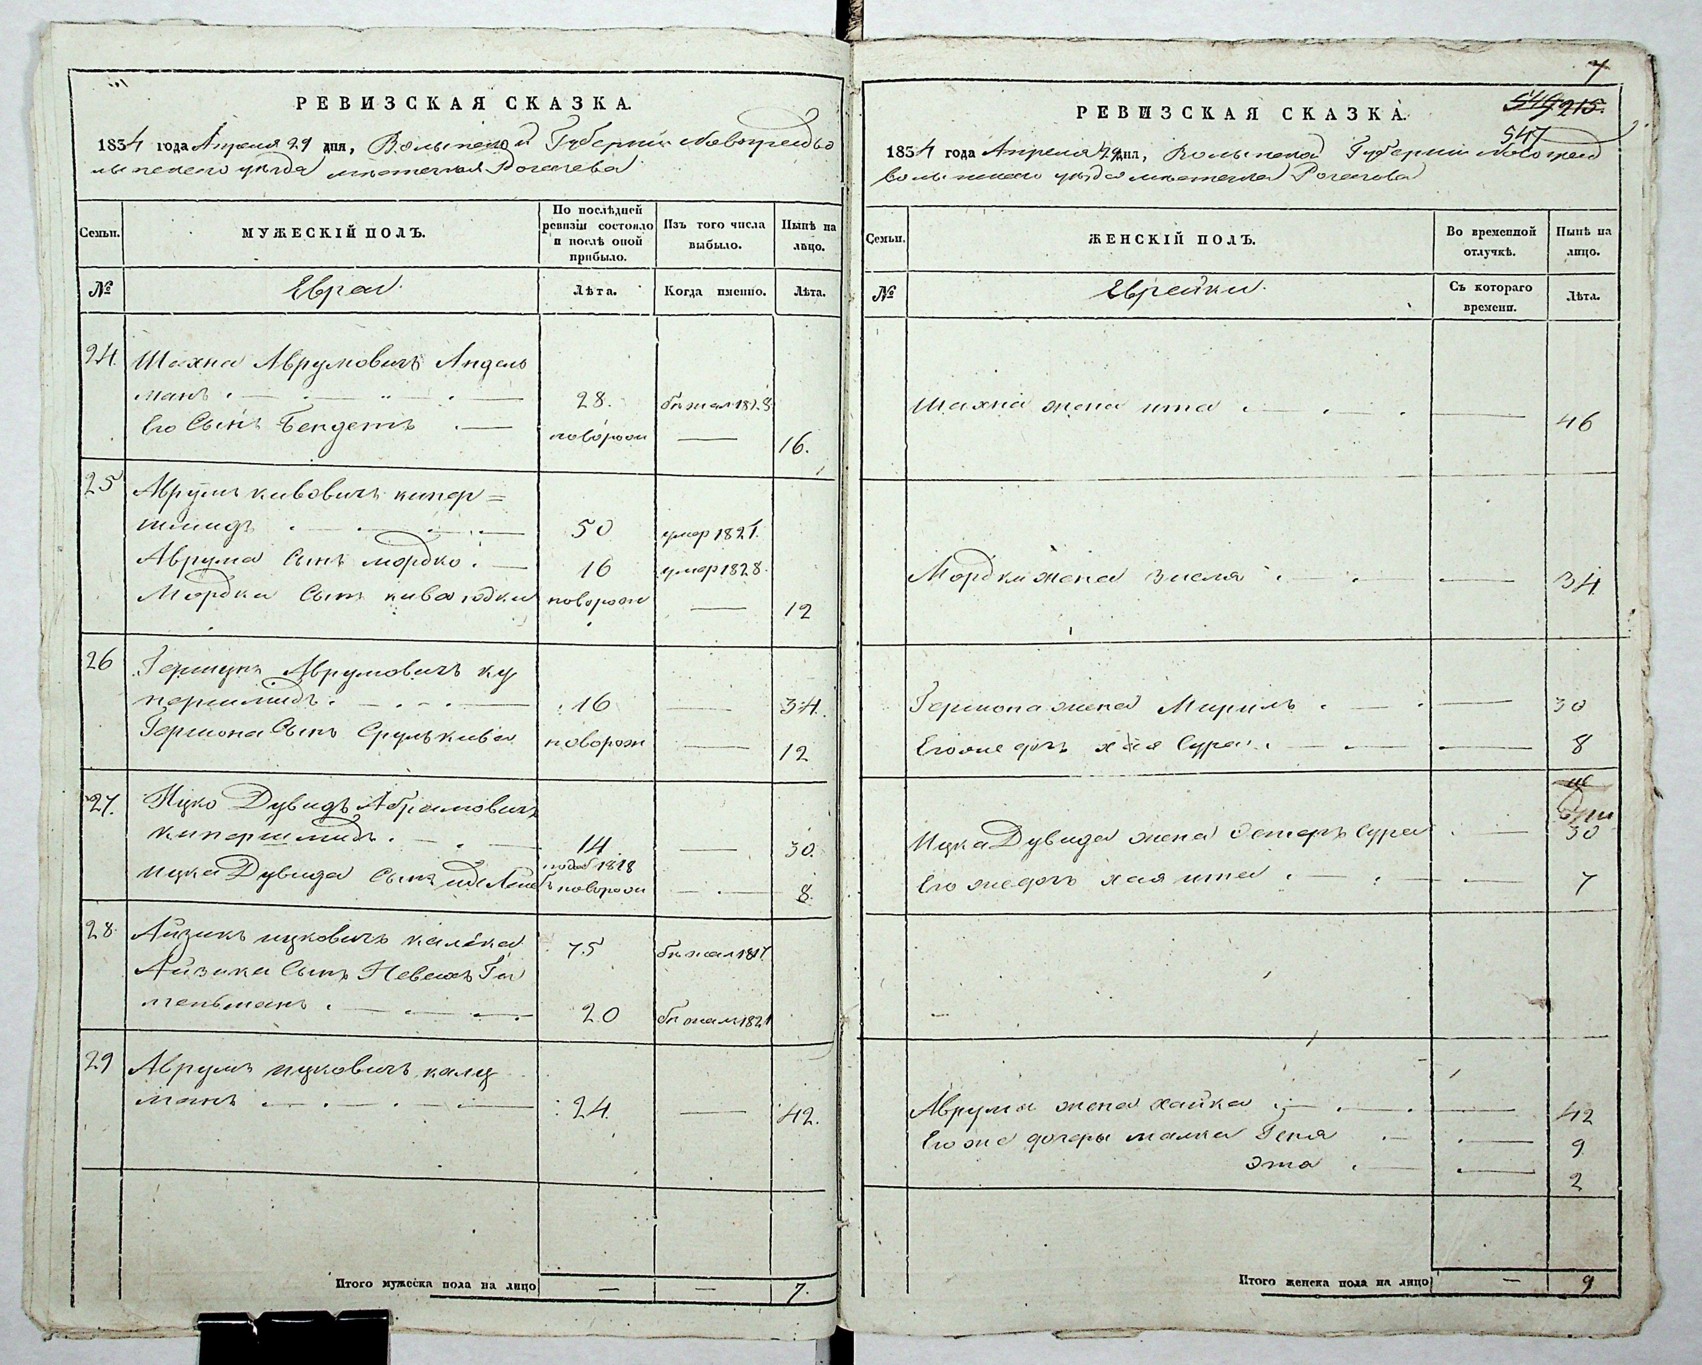 РЕВИЗСКАЯ СКАЗКА.
1834 года Апреля 29 дня, Волынской Губернии Новоградво
лынского уезда местечка Рогачева
Семьи.
МУЖЕСКІЙ ПОЛЪ.
По послѣдней ревизіи состояло и послѣ оной прибыло.
Изъ того числа выбыло.
Нынѣ на лицо.
№
Евреи.
Лѣта.
Когда именно.
Лѣта.
24. Шахна Аврумовичъ Андель
манъ 28. бежал 1828
Его Сынъ Бендетъ новорож 16.
25 Аврумъ кивовичъ купер=
шмидъ 50 умер 1821.
Аврума Сынъ мордко 16 умер 1828.
Мордки Сынъ кива юдка новорож 12
26 Гершунъ Аврумовичъ ку
першмидъ. 16 34.
Гершона Сынъ Сруль кива новорож 12
27. Ицко Дувидъ Абрамовичъ
купершмидъ. 14 30.
ицка Дувида Сынъ новорож 8.
28. Айзикъ ицковичъ калека 75 бежал 1817
Айзика Сынъ
20 бежал 1821
29 Аврумъ ицковичъ калц
манъ 24 42.
Итого мужеска пола на лицо — — 7.
7
549 215.
547
РЕВИЗСКАЯ СКАЗКА.
1834 года Апреля 29 дня, Волынской Губернии Новоград
волынского уезда местечка Рогачева
Семьи.
ЖЕНСКІЙ ПОЛЪ.
Во временной отлучкѣ.
Нынѣ на лицо.
№
Еврейки.
Съ котораго времени.
Лѣта.
Шахна жена ита 46
Мордки жена зисля 34
Гершона жена Мириль 30
Его же дочь хая Сура 8
Ицка Дувида жена Эстеръ Сура 30
Его же дочь хая ита 7
Аврума жена хайка 42
Его же дочери малка Геня 9
Эта 2
Итого женска пола на лицо — 9